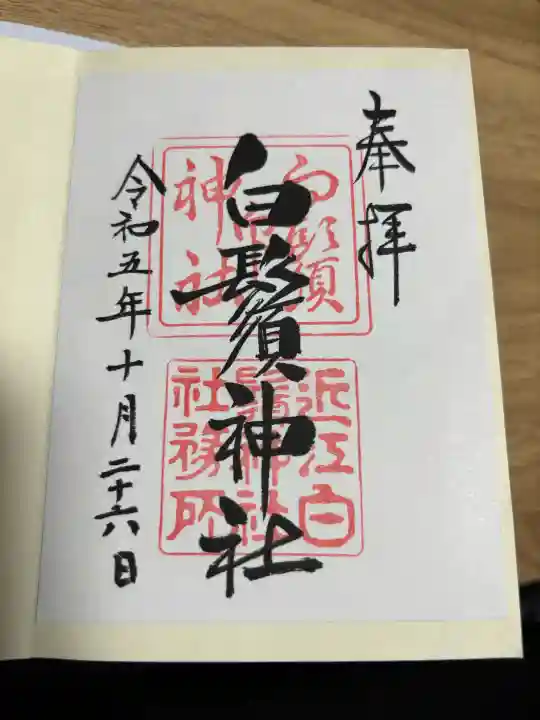 奉拝
白鬚神社
令和五年十月二十六日
白鬚
神社
近江白
鬚神社
社務所